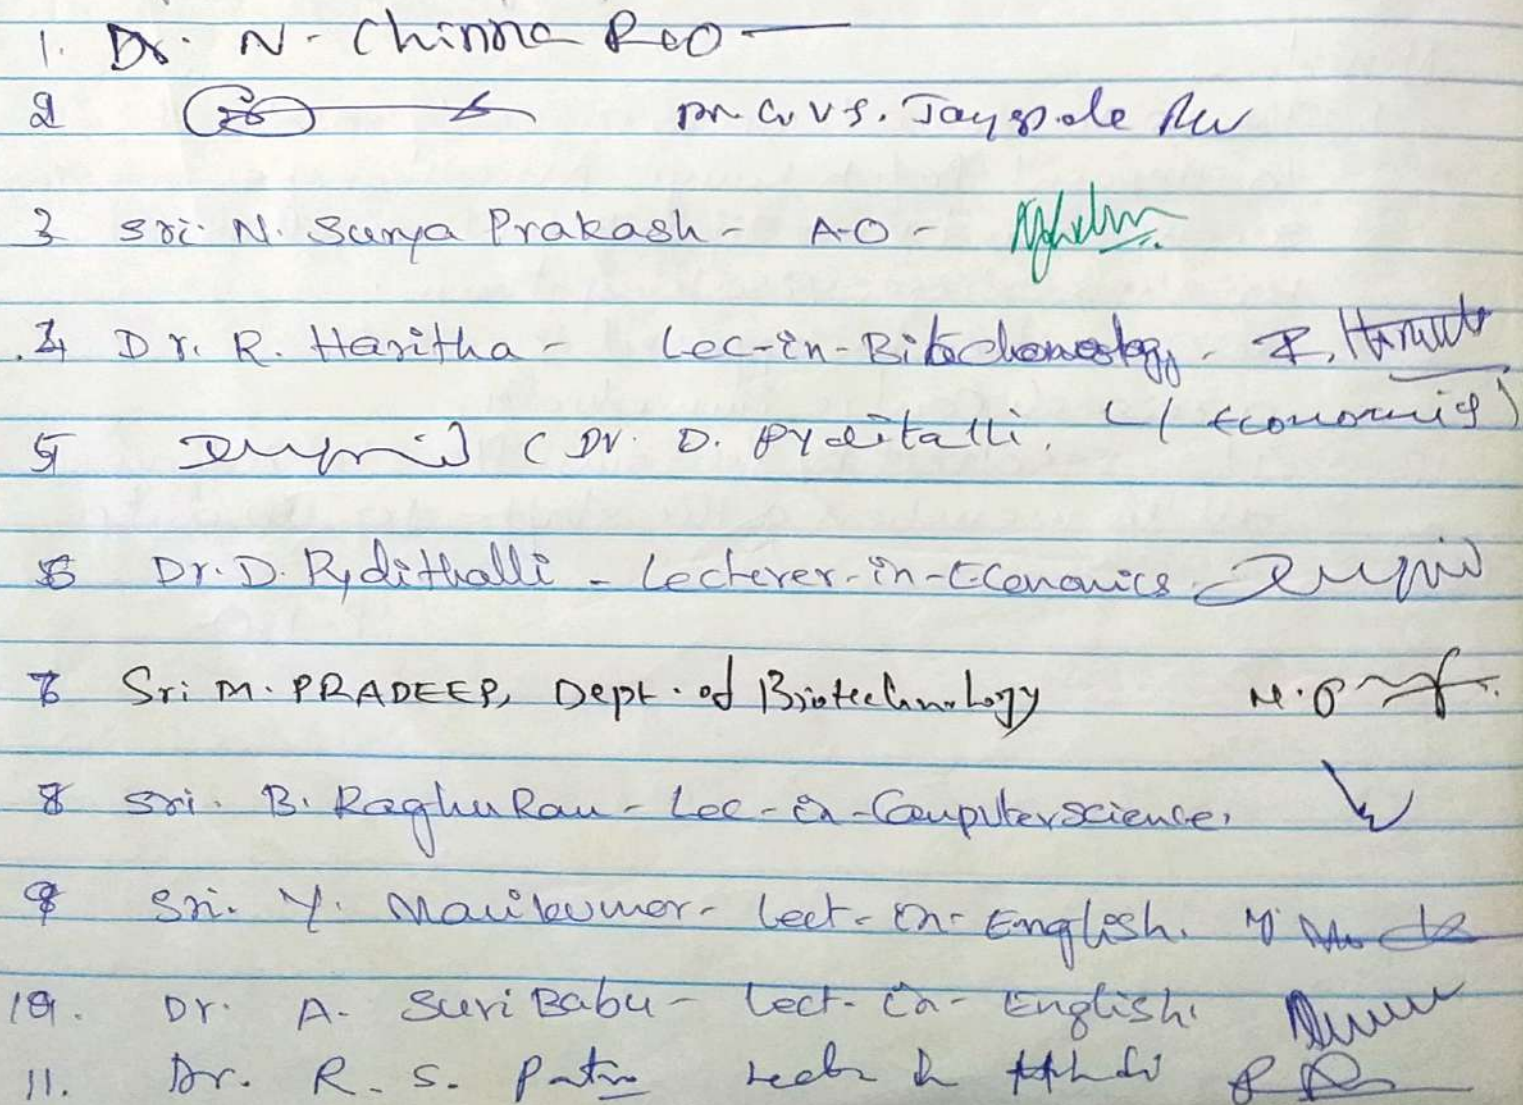 1. Dr. N. Chinna Rao
2 Dr. G V S. Jay
3 Sri. N. Surya Prakash - A.O -
4 Dr. R. Haritha - Lec-in-Bitechonology - R. Haritha
5 (Dr. D. Pyditalli. L/ Economics)
6 Dr. D. Pydithalli - Lecterer-in-Economics
7 Sri M. PRADEEP, Dept. of Biotechnology
8 Sri. B. Raghu Ram - Lec-in-Computerscience.
9 Sri. Y. Manikumar - Lect-in-English.
10. Dr. A. Suri Babu - Lect-in-English.
11. Dr. R. S. Lect in Hindi